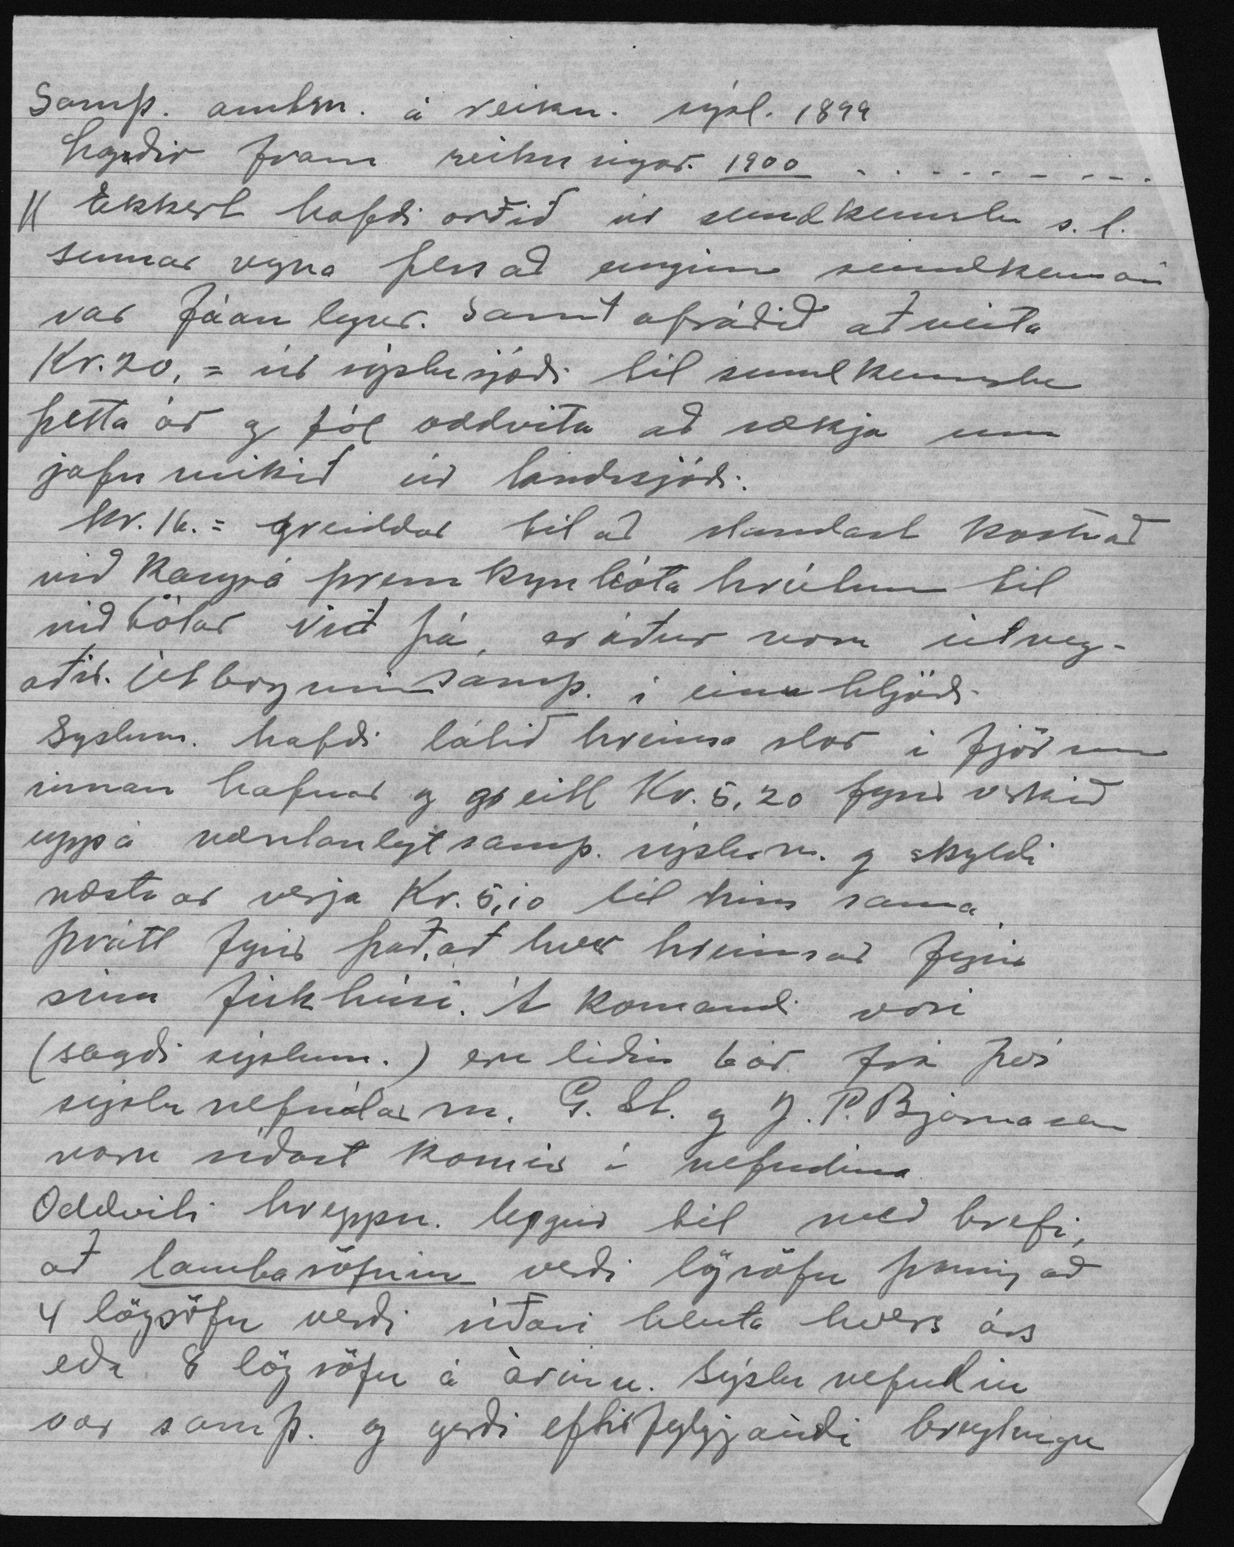 Samþ. amtsn. á reikn. sýsl. 1899
lagðir fram reikningar. 1900 . . . . . . . .
Ekkert hafði orðið úr sundkennslu s.l.
sumar vegna þess að enginn sundkennari
var fáanlegur. Samt afráðið að veita
Kr. 20,= úr sýslusjóði til sundkennslu
þetta ár og fól oddvita að sækja um
jafnmikið úr landssjóði.
Kr. 16.= greiddar til að standast kostnað
við kaup á þrem kynbótahrútum til
viðbótar við þá, er áður voru útveg-
aðir. Útborgunin samþ. í einu hljóði.
Sýslum. hafði látið hreinsa slor í fjörunni
innan hafnar og greitt Kr. 5,20 fyrir verkið
uppá væntanlegt samþ. sýslun. og skyldi
næsta ár verja Kr. 5,10 til hins sama
þrátt fyrir það, að hver hreinsar fyrir
sínu fiskhúsi. Á komandi vori
(sagði sýslum.) eru liðin 6 ár frá því
sýslunefndarm. G. St. og J. P. Bjarnasen
voru síðast komnir í nefndina
Oddviti hreppsn. leggur til með bréfi,
að lambasöfnin verði lögsöfn þannig að
4 lögsöfn verði síðari hluta hvers árs
eða 8 lögsöfn á árinu. Sýslunefndin
var samþ. og gerði eftirfylgjandi breytingu